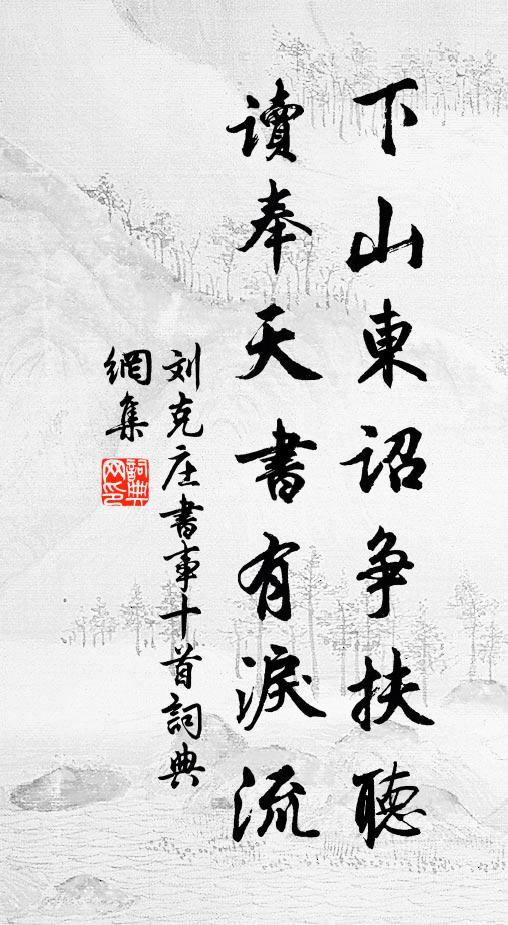 下山東詔争扶聽
讀奉天書有淚流
刘克庄書事十首詞典
網集
詞典
网印